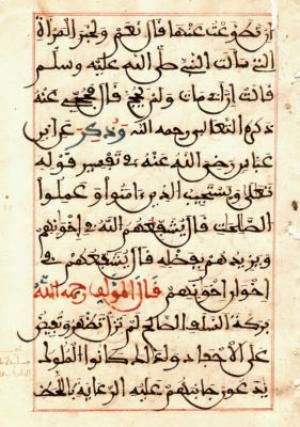 ان تطوعت عنها قال نعم ولخبر المرأة
التي سألت النبي صلى الله عليه وسلم
قالت إن أبي مات ولم يحج قال فحجي عنه
ذكره الثعالبي رحمه الله وذكر عن ابن
عباس رضي الله عنه في تفسير قوله
تعالى ويستجيب الذين ءامنوا وعملوا
الصالحات قال يشفعهم الله في إخوانهم
ويزيدهم بفضله قال يشفعهم في
إخوان إخوانهم قال المؤلف رحمه الله
بركة السلف الصالح لم تزل تظهر وتفيض
على الأحفاد ولذلك كانوا الملوك
يدعون جانبهم عليه الرعاية بالحفظ